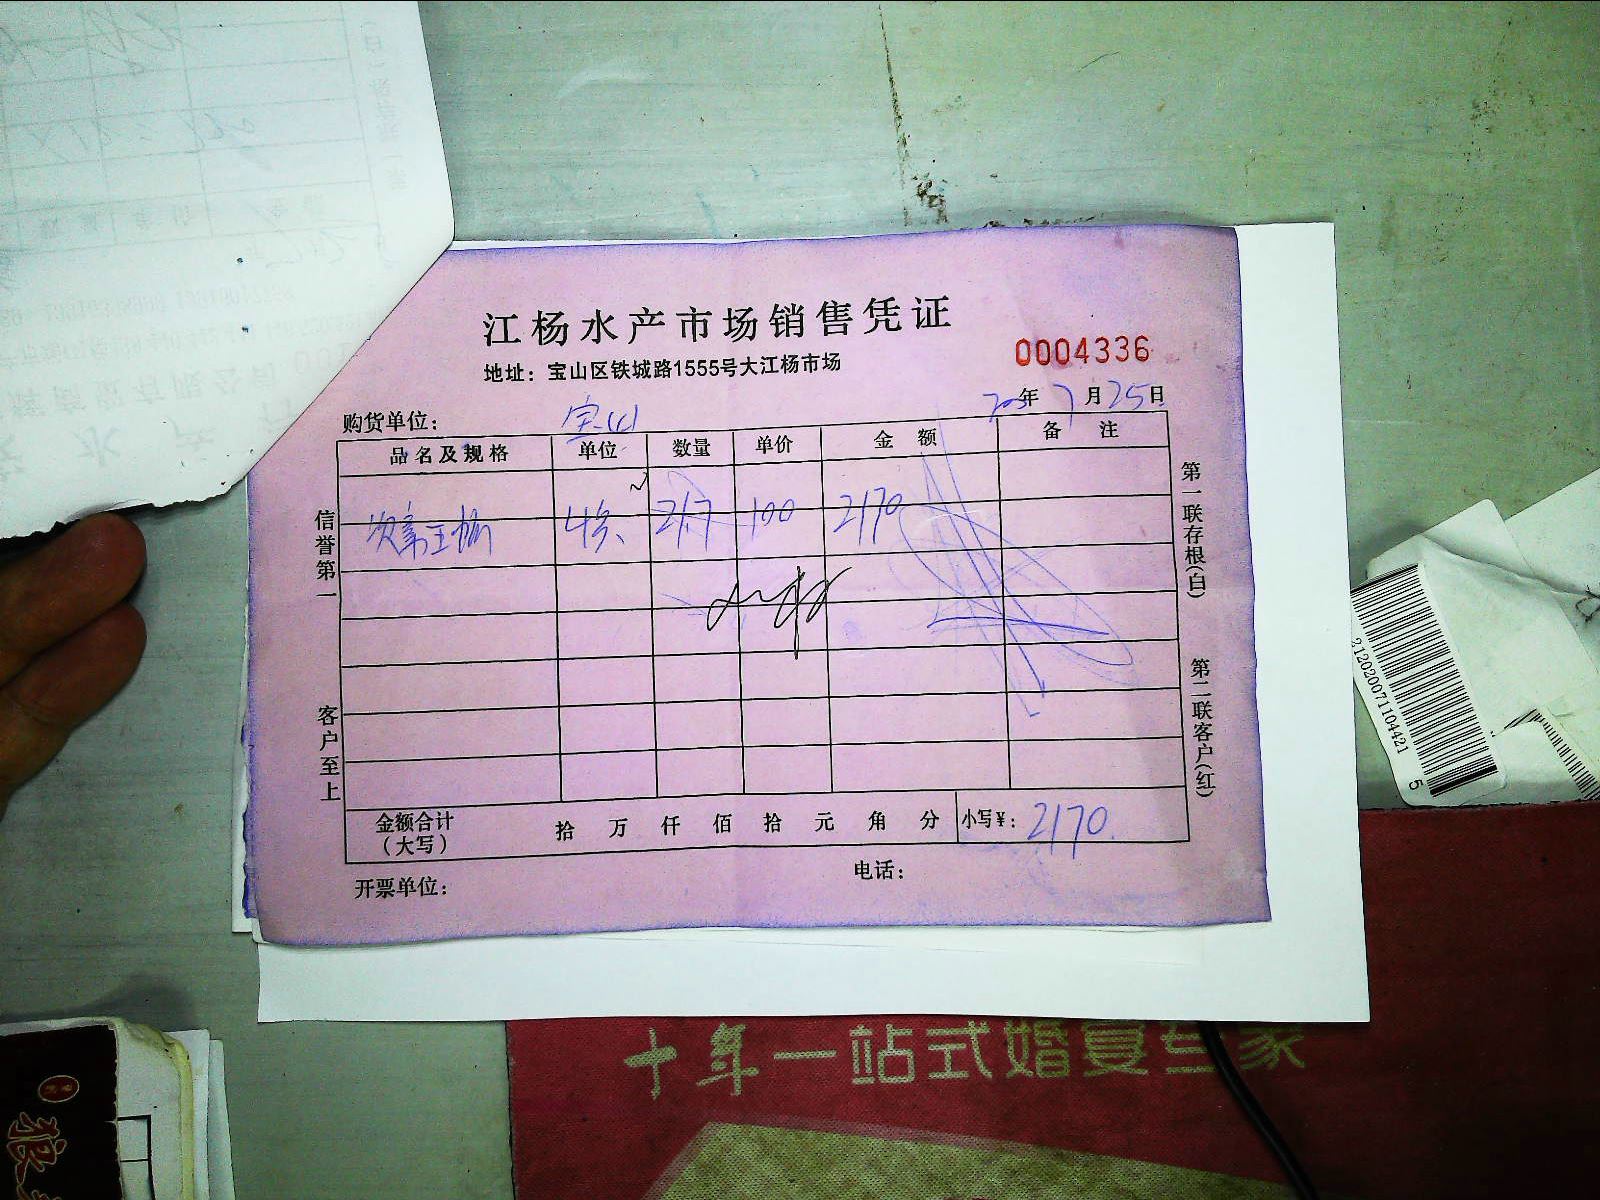 江杨水产市场销售凭证
0004336
地址：宝山区铁城路1555号大江杨市场
年7月25日
购货单位： 宝山
品名及规格 单位 数量 单价 金额 备注
21.7 100 2170
金额合计（大写） 拾 万 仟 佰 拾 元 角 分 小写¥：2170.
开票单位： 电话：
信誉第一 客户至上
第一联存根(白) 第二联客户(红)
2120200711044215
十年一站式婚宴专家